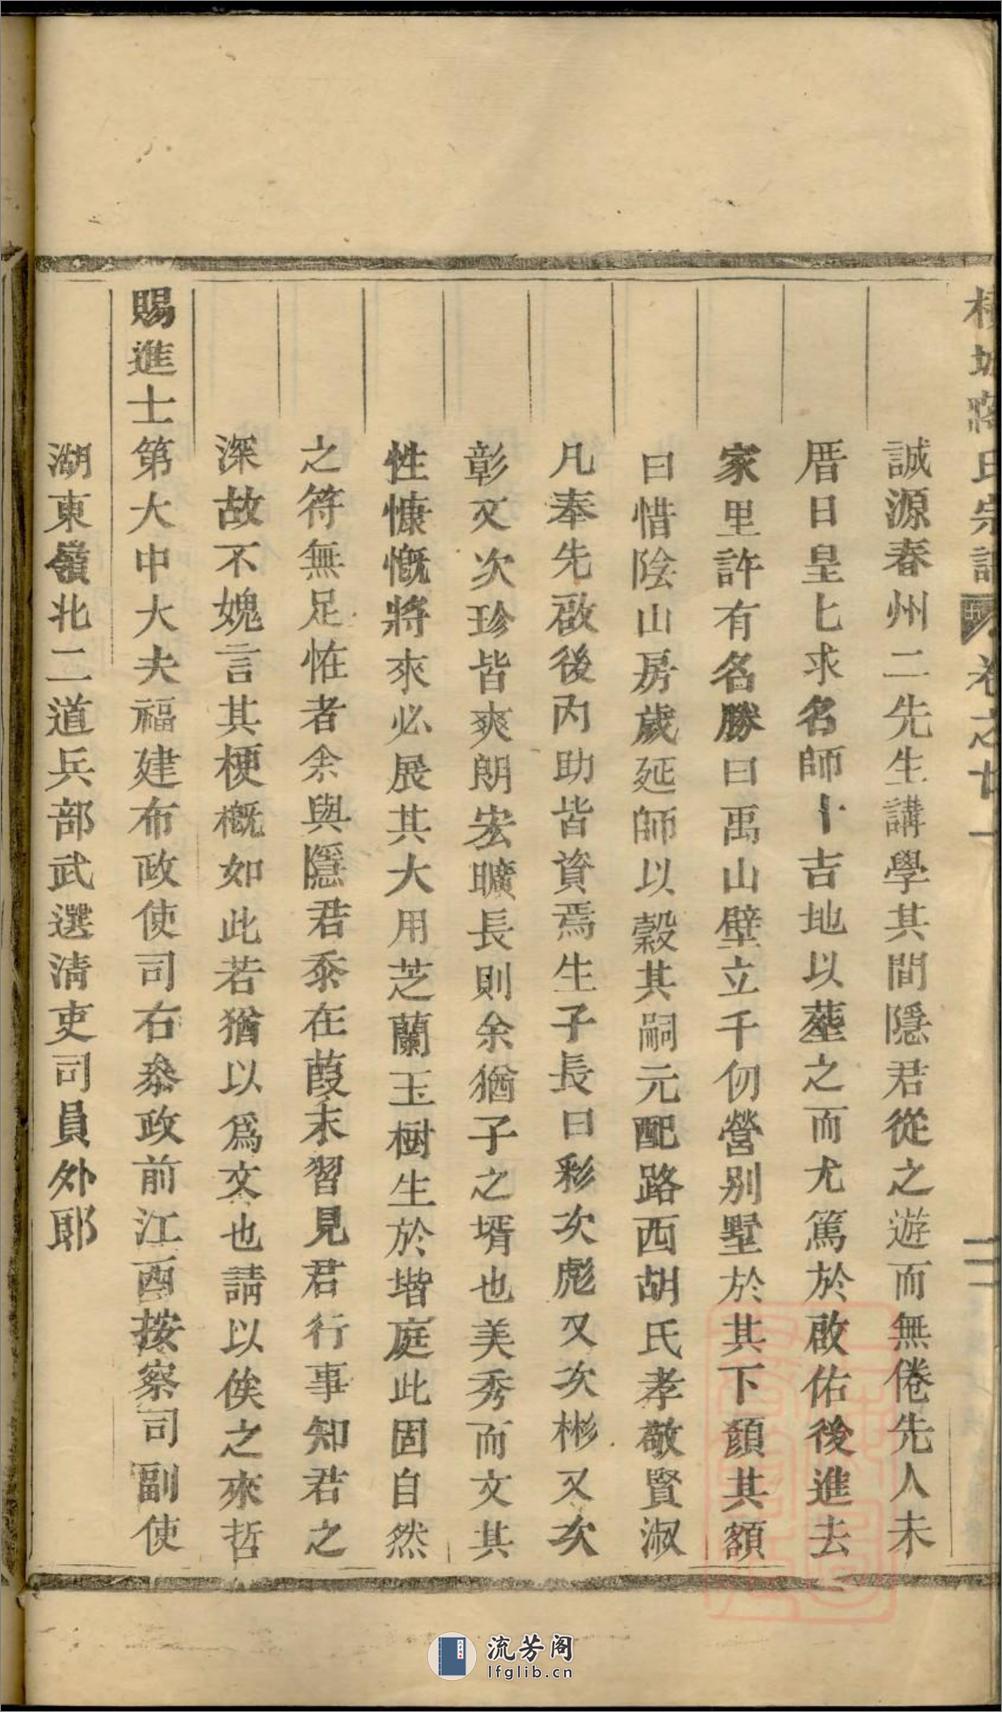 誠源春州二先生講學其間隱君從之遊而無倦先人未
厝日皇匕求名師卜吉地以塟之而尤篤於啟佑後進去
家里許有名勝曰禹山壁立千仞營别墅於其下顏其額
曰惜陰山房歲延師以穀其嗣元配路西胡氏孝敬賢淑
凡奉先啟後内助皆資焉生子長曰彩次彪又次彬又次
彰又次珍皆爽朗宏曠長則余猶子之壻也美秀而文其
性慷慨將來必展其大用芝蘭玉樹生於堦庭此固自然
之符無足恠者余與隱君忝在葭末習見君行事知君之
深故不媿言其梗概如此若猶以爲文也請以俟之來哲
賜進士第大中大夫福建布政使司右叅政前江西按察司副使
湖東嶺北二道兵部武選清吏司員外郎
氏宗譜 卷之廿一
流芳阁
lfglib.cn